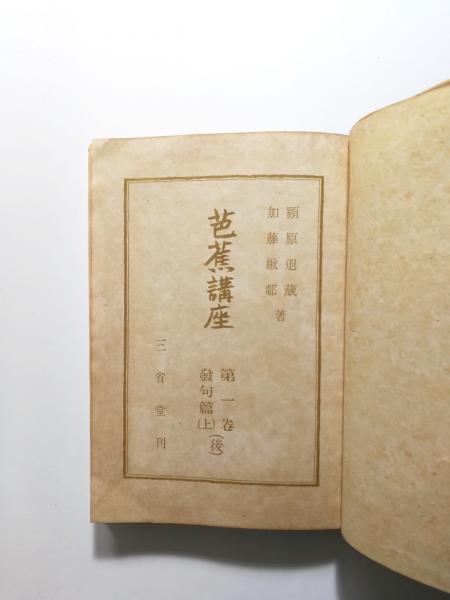 頴原退蔵
加藤楸邨 著
芭蕉講座
第一巻(後)
發句篇(上)
三省堂刊